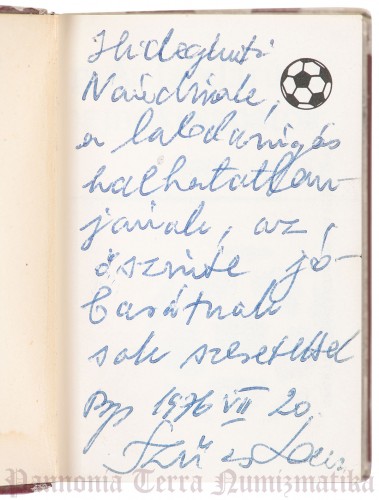 Hidegkuti
Nándinak,
a labdarúgás
halhatatlan-
jának, az
őszinte jó
barátnak
sok szeretettel
Bp 1976 VII 20.
Pannonia Terra Numizmatika